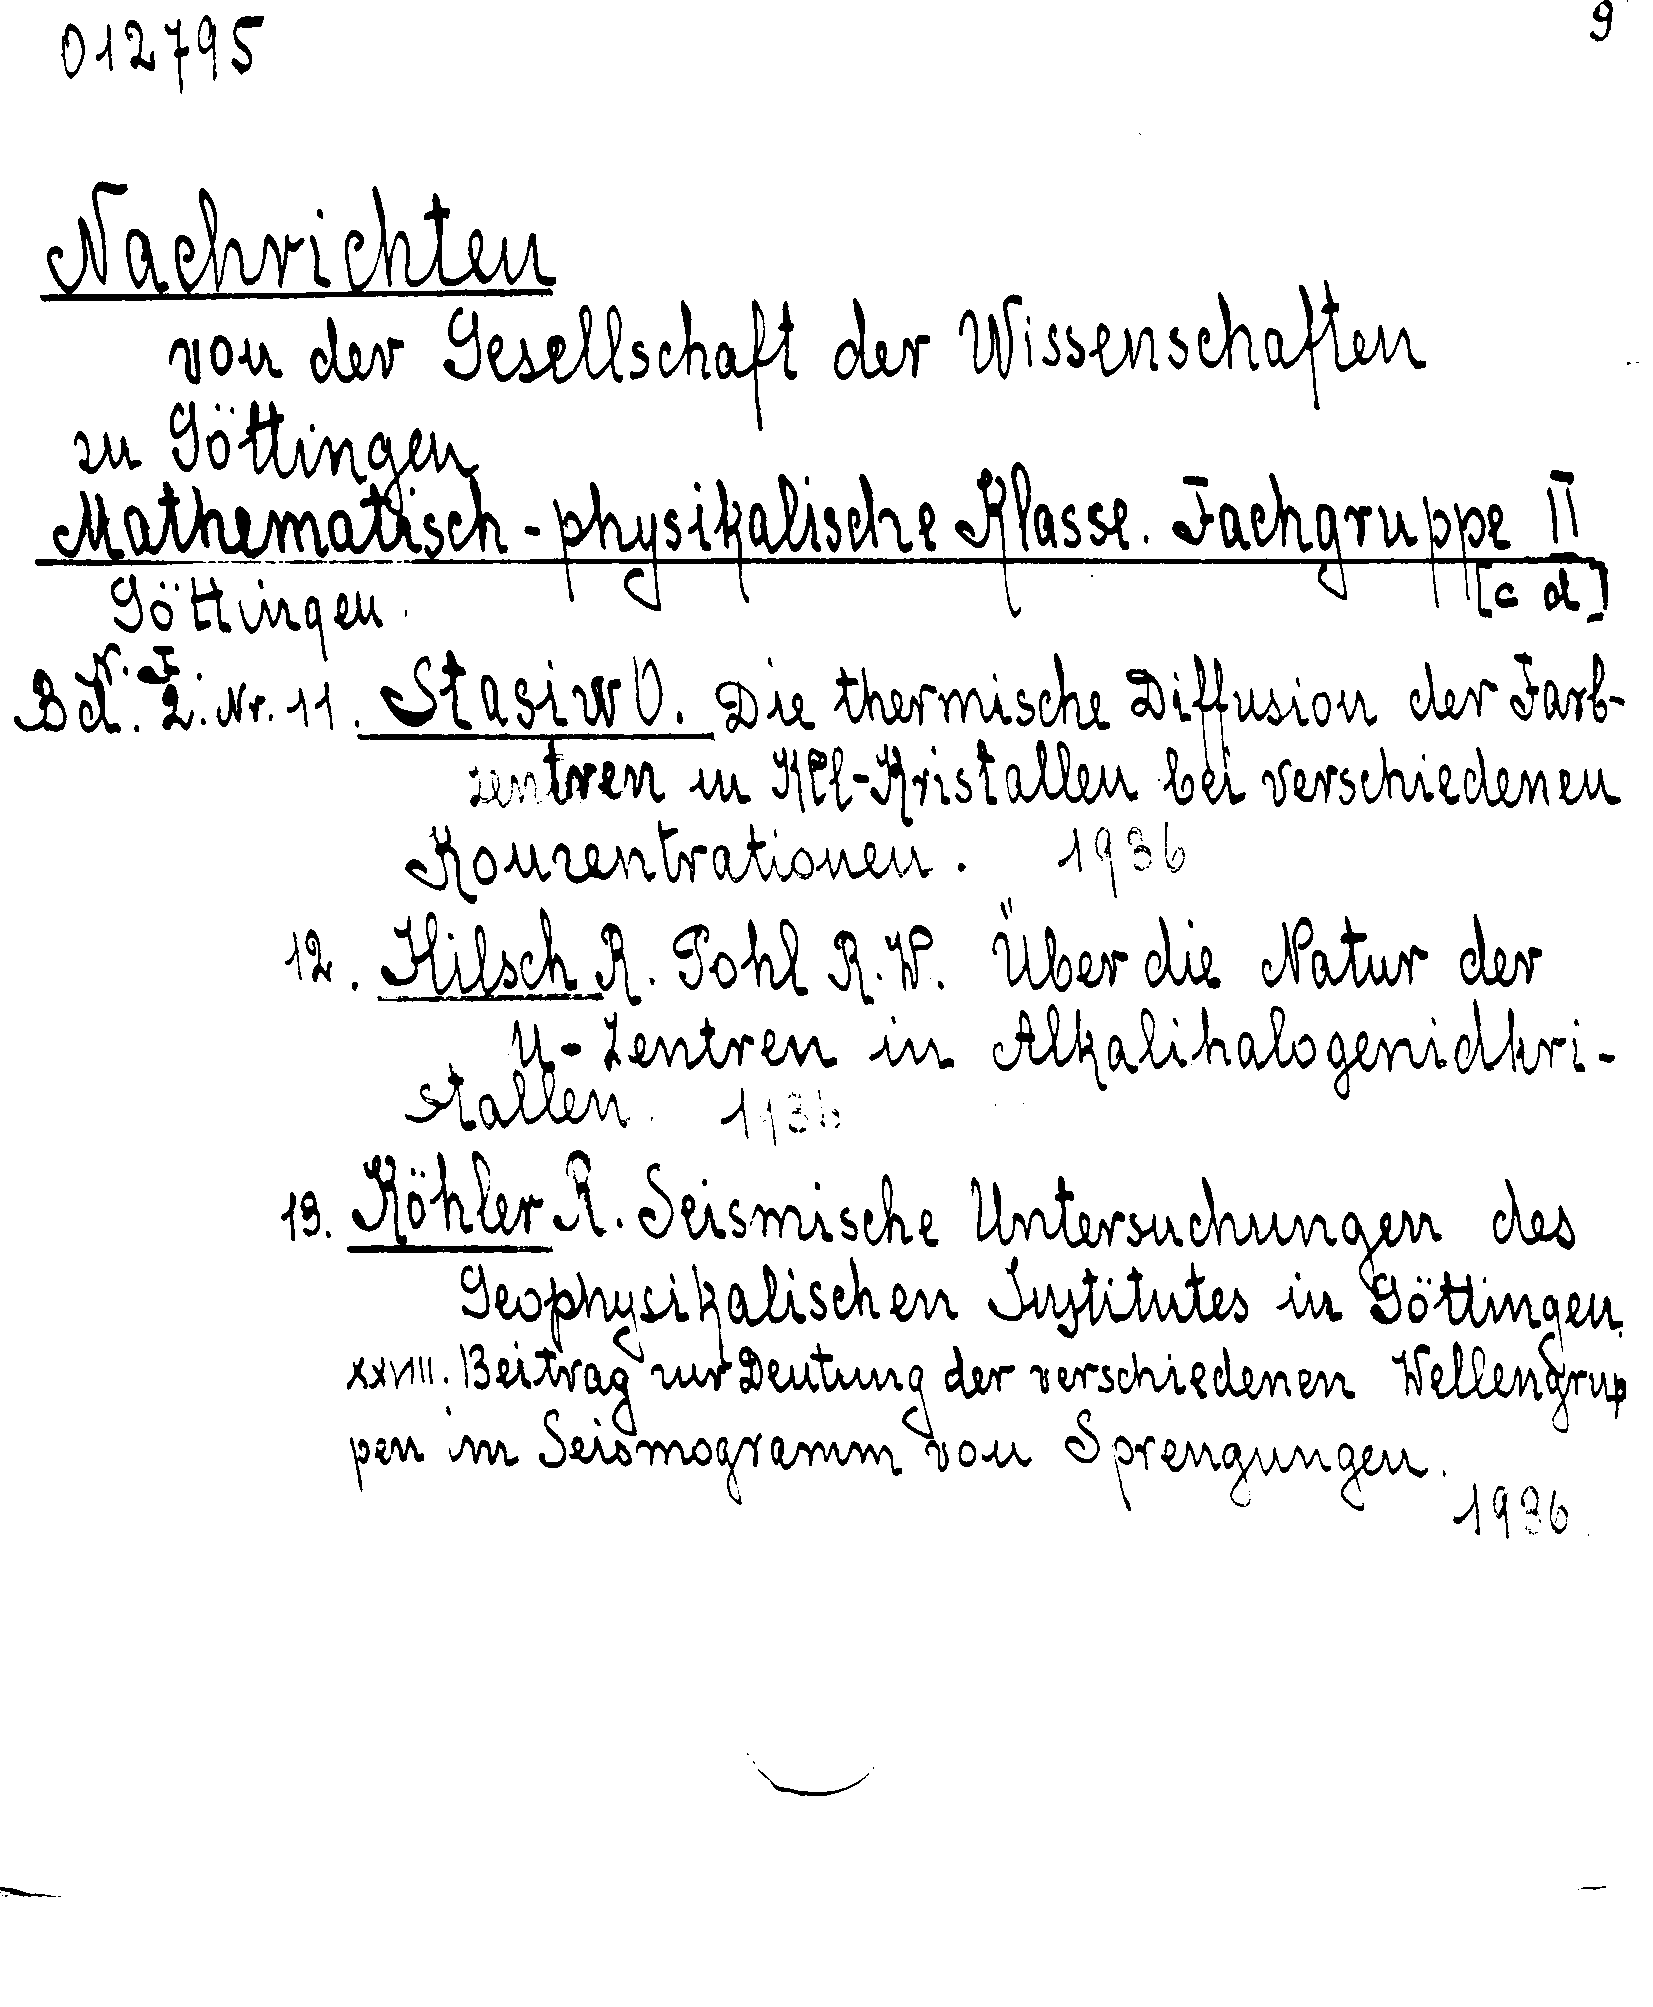 012795
9
Nachrichten
von der Gesellschaft der Wissenschaften
zu Göttingen
Mathematisch-physikalische Klasse. Fachgruppe II
[c d]
Göttingen.
N. F.
Bd. 2. Nr. 11. Stasiw O. Die thermische Diffusion der Farb-
zentren in KCl-Kristallen bei verschiedenen
Konzentrationen. 1936
12. Hilsch R. Pohl R. W. Über die Natur der
U-Zentren in Alkalihalogenidkri-
stallen. 1936
13. Köhler R. Seismische Untersuchungen des
Geophysikalischen Institutes in Göttingen.
XXVIII. Beitrag zur Deutung der verschiedenen Wellengrup
pen im Seismogramm von Sprengungen.
1936.